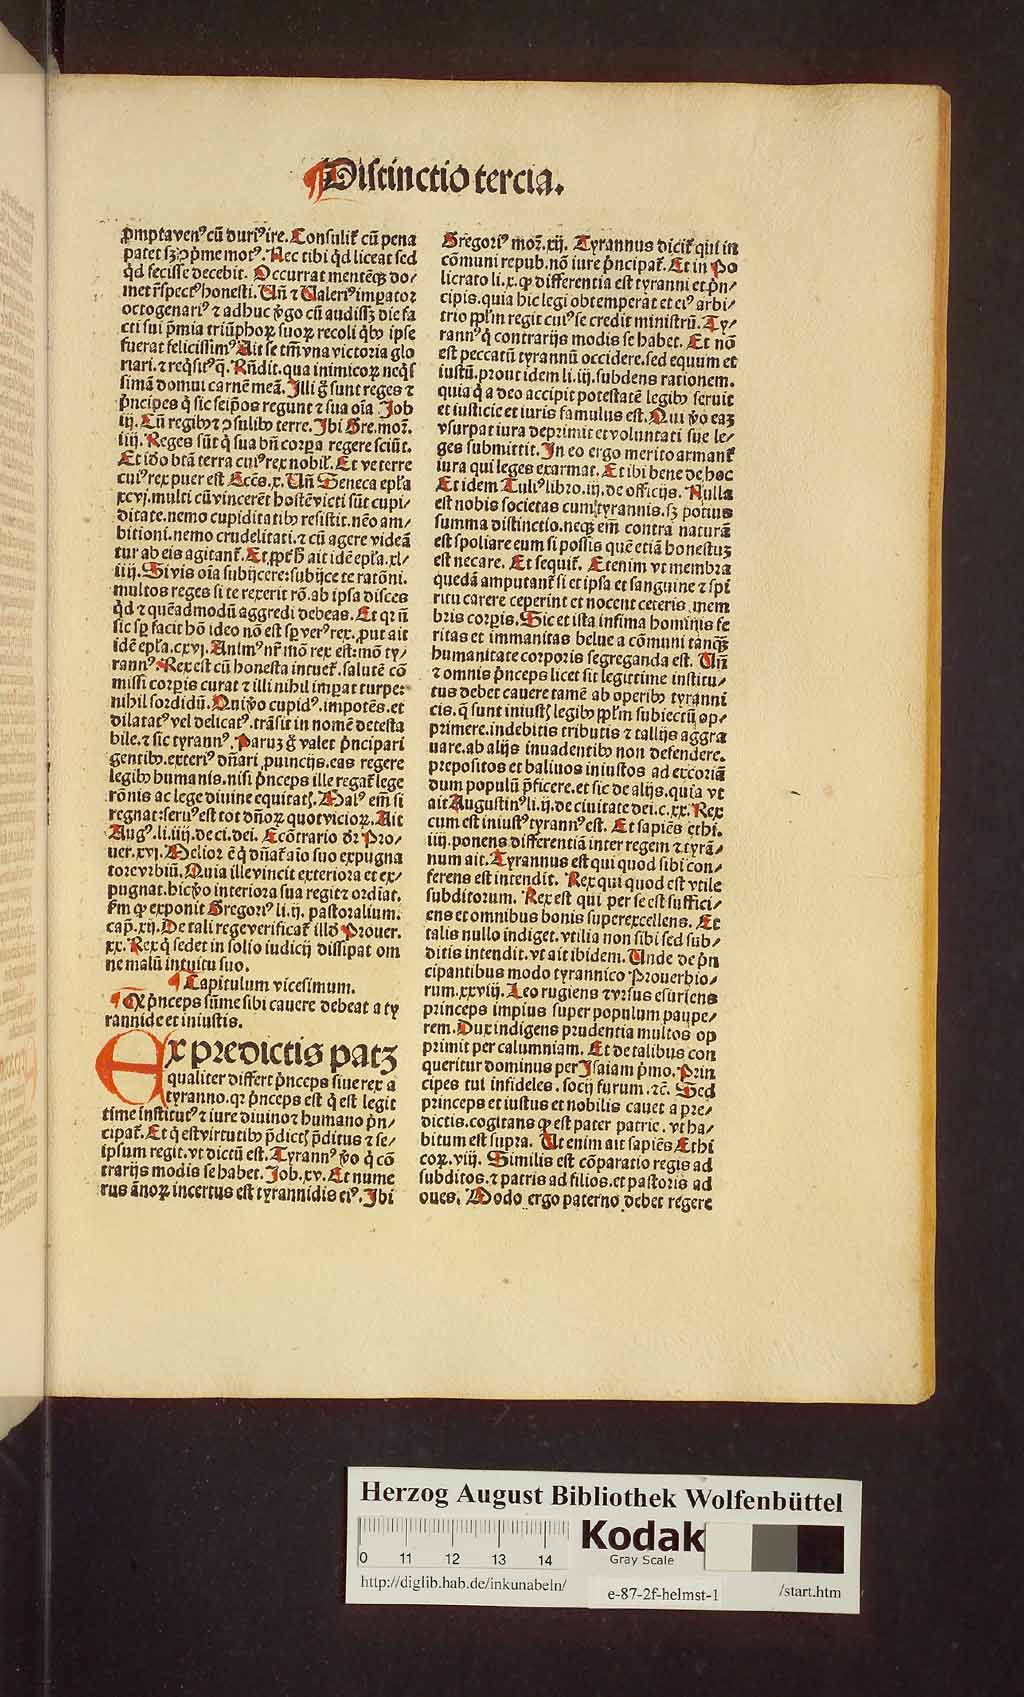 Distinctio tercia.
ꝓmptavenꝰ cū duriꝰ ire. Consulit̃ cū pena
patet sꝫ ꝯp̃me motꝰ. Nec tibi qd̓ liceat sed
qd̓ fecisse decebit. Occurrat mentēqꝫ do⸗
met r̃spectꝰ honesti. Uñ ⁊ Ualeriꝰ impator
octogenariꝰ ⁊ adhuc ꝟgo cū audissꝫ die fa
cti sui p̃mia triūphoꝝ suoꝝ recoli qibꝰ ipse
fuerat felicissimꝰ Ait se tm̄ vna victoria glo
riari. ⁊ reqͥsitꝰ q̄. Rñdit. qua inimicoꝝ neqͥs
simā domui carnē meā. Illi g̊ sunt reges ⁊
p̓ncipes q̓ sic seip̄os regunt ⁊ sua oīa Job
iij. Cū regibꝰ ⁊ ꝯsulibꝰ terre. Ibi Gre. moꝝ.
iiij. Reges sūt q̓ sua bñ corꝑa regere sciūt.
Et iđo btā terra cuiꝰ rex nobil̓. Et ve terre
cuiꝰ rex puer est Eccēs. x. Uñ Seneca epl̄a
xcvj. multi cū vincerēt hostē victi sūt cupi⸗
ditate. nemo cupiditatibꝰ resistit. nēo am⸗
bitioni. nemo crudelitati. ⁊ cū agere videā
tur ab eis agitant̃. Et ꝓpt̓ h̓ ait idē epl̄a. xl⸗
iij. Si vis oīa subijcere: subijce te ratōni.
multos reges si te rexerit rō. ab ipsa disces
qd̓ ⁊ quēadmodū aggredi debeas. Et qꝛ ñ
sic sꝑ facit hō ideo nō est sꝑ verꝰ rex. ꝓut ait
idē epl̄a. cxvj. Animꝰ nr̄ mō rex est: mō ty⸗
rannꝰ. Rex est cū honesta intuet̃. salutē cō
missi corꝑis curat ⁊ illi nihil imꝑat turpe:
nihil sordidū. Qui ꝟo cupidꝰ. impotēs. et
dilatatꝰ vel delicatꝰ. trāsit in nomē detesta
bile. ⁊ sic tyrannꝰ. Paruꝫ g̊ valet p̓ncipari
gentibꝰ. exteriꝰ dñari ꝓuincijs. eas regere
legibꝰ humanis. nisi p̓nceps ille regat̃ lege
rōnis ac lege diuine equitatꝭ. Malꝰ em̄ si
regnat: seruꝰ est tot dñoꝝ quot vicioꝝ. Ait
Augꝰ. li. iiij. de ci. dei. Ecōtrario dr̄ Pro⸗
uer. xvj. Melior ē q̓ dñat̃ aīo suo expugna
tore vrbiū. Quia ille vincit exteriora et ex⸗
pugnat. hic ꝟo interiora sua regit ⁊ ordīat.
fm̄ ꝙ exponit Gregoriꝰ li. ij. pastoralium.
cap̄. xij. De tali rege verificat̃ illđ Prouer.
xx. Rex q̓ sedet in solio iudicij dissipat om
ne malū intuitu suo.
Capitulum vicesimum.
Qꝙ p̓nceps sūme sibi cauere debeat a ty
rannide et iniustis.
Ex predictis patꝫ
qualiter differt p̓nceps siue rex a
tyranno. qꝛ p̓nceps est q̓ est legit
time institutꝰ ⁊ iure diuino ⁊ humano p̓n⸗
cipat̃. Et q̓ est virtutibꝰ p̄dictꝭ p̄ditus ⁊ se⸗
ipsum regit. vt dictū est. Tyrannꝰ ꝟo q̓ cō
trarijs modis se habet. Job. xv. Et nume
rus ānoꝝ incertus est tyrannidis eiꝰ. Ibi
Gregoriꝰ moꝝ. xij. Tyrannus dicit̃ qui in
cōmuni repub. nō iure p̓ncipat̃. Et in Po
licrato li. x. ꝙ differentia est tyranni et p̓n⸗
cipis. quia hic legi obtemperat et eiꝰ arbi⸗
trio ppl̄m regit cuiꝰ se credit ministrū. Ty⸗
rannꝰ q̓ contrarijs modis se habet. Et nō
est peccatū tyrannū occidere. sed equum et
iustū. prout idem li. iij. subdens rationem.
quia q̓ a deo accipit potestatē legibꝰ seruit
et iusticie et iuris famulus est. Qui ꝟo eaꝫ
vsurpat iura deprimit et voluntati sue le⸗
ges submittit. In eo ergo merito armant̃
iura qui leges exarmat. Et ibi bene de hoc
Et idem Tuliꝰ libro. iij. de officijs. Nulla
est nobis societas cum tyrannis. sꝫ potius
summa distinctio. neqꝫ em̄ contra naturā
est spoliare eum si possis quē etiā honestuꝫ
est necare. Et sequit̃. Etenim vt membra
quedā amputant̃ si et ipsa et sanguine ⁊ spī
ritu carere ceperint et nocent ceteris. mem
bris corꝑis. Sic et ista infima hominis fe
ritas et immanitas belue a cōmuni tanqꝫ
humanitate corporis segreganda est. Uñ
⁊ omnis p̓nceps licet sit legittime institu⸗
tus debet cauere tamē ab operibꝰ tyranni
cis. q̄ sunt iniustꝭ legibꝰ ppl̄m subiectū op⸗
primere. indebitis tributis ⁊ tallijs aggra
uare. ab alijs inuadentibꝰ non defendere.
prepositos et baliuos iniustos ad excoriā
dum populū p̄ficere. et sic de alijs. quia vt
ait Augustinꝰ li. ij. de ciuitate dei. c. xx. Rex
cum est iniustꝰ tyrannꝰ est. Et sapiēs ethi.
iiij. ponens differentiā inter regem ⁊ tyrā⸗
num ait. Tyrannus est qui quod sibi con⸗
ferens est intendit. Rex qui quod est vtile
subditorum. Rex est qui per se est suffici⸗
ens et omnibus bonis superexcellens. Et
talis nullo indiget. vtilia non sibi sed sub⸗
ditis intendit. vt ait ibidem. Unde de p̓n
cipantibus modo tyrannico Prouerbio⸗
rum. xxviij. Leo rugiens ⁊ vrsus esuriens
princeps impius super populum paupe⸗
rem. Dux indigens prudentia multos op
primit per calumniam. Et de talibus con
queritur dominus per Isaiam p̓mo. Prin
cipes tui infideles. socij furum. ⁊c̄. Sed
princeps et iustus et nobilis cauet a pre⸗
dictis. cogitans ꝙ est pater patrie. vt ha⸗
bitum est supra. Ut enim ait sapiēs Ethi
coꝝ. viij. Similis est cōparatio regis ad
subditos. ⁊ patris ad filios. et pastoris ad
oues. Modo ergo paterno debet regere
Herzog August Bibliothek Wolfenbüttel
Kodak
Gray Scale
0 11 12 13 14
http://diglib.hab.de/inkunabeln/
e-87-2f-helmst-1
/start.htm